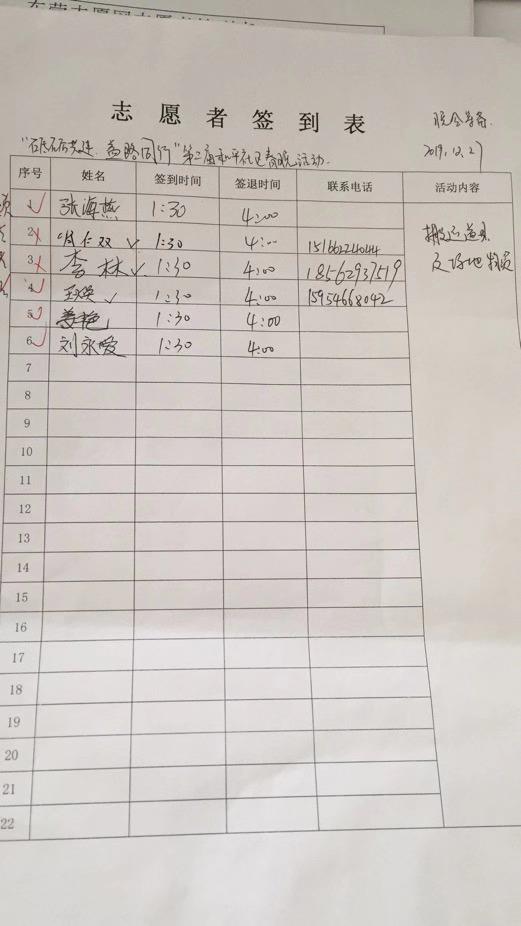 志愿者签到表
晚会筹备
2019.12.27
"砥砺奋进 益路同行"第二届和平社区春晚活动.
序号 姓名 签到时间 签退时间 联系电话 活动内容
1 张海燕 1:30 4:00
2 1:30 4:00 15166224044
3 李林 1:30 4:00 18562937519
4 王焕 1:30 4:00 15954668042
5 姜艳 1:30 4:00
6 刘永爱 1:30 4:00
搬运道具
及场地
7
8
9
10
11
12
13
14
15
16
17
18
19
20
21
22